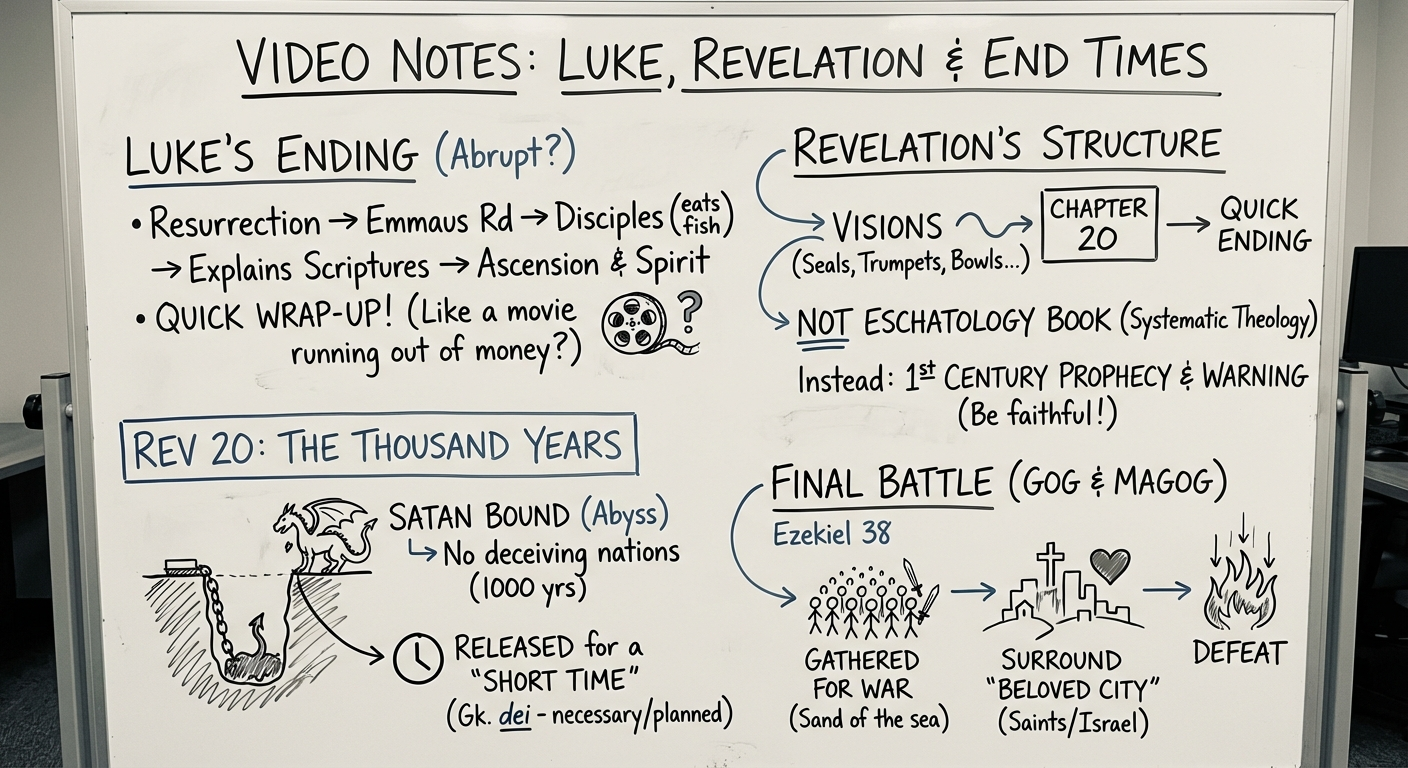 VIDEO NOTES: LUKE, REVELATION & END TIMES
LUKE'S ENDING (Abrupt?)
• Resurrection → Emmaus Rd → Disciples (eats fish)
→ Explains Scriptures → Ascension & Spirit
• QUICK WRAP-UP! (Like a movie
running out of money?)
?
REV 20: THE THOUSAND YEARS
SATAN BOUND (Abyss)
No deceiving nations
(1000 yrs)
RELEASED for a
"SHORT TIME"
(Gk. dei - necessary/planned)
REVELATION'S STRUCTURE
VISIONS → CHAPTER 20 → QUICK ENDING
(Seals, Trumpets, Bowls...)
NOT ESCHATOLOGY BOOK (Systematic Theology)
Instead: 1st CENTURY PROPHECY & WARNING
(Be faithful!)
FINAL BATTLE (GOG & MAGOG)
Ezekiel 38
GATHERED
FOR WAR
(Sand of the sea)
SURROUND
"BELOVED CITY"
(Saints/Israel)
DEFEAT